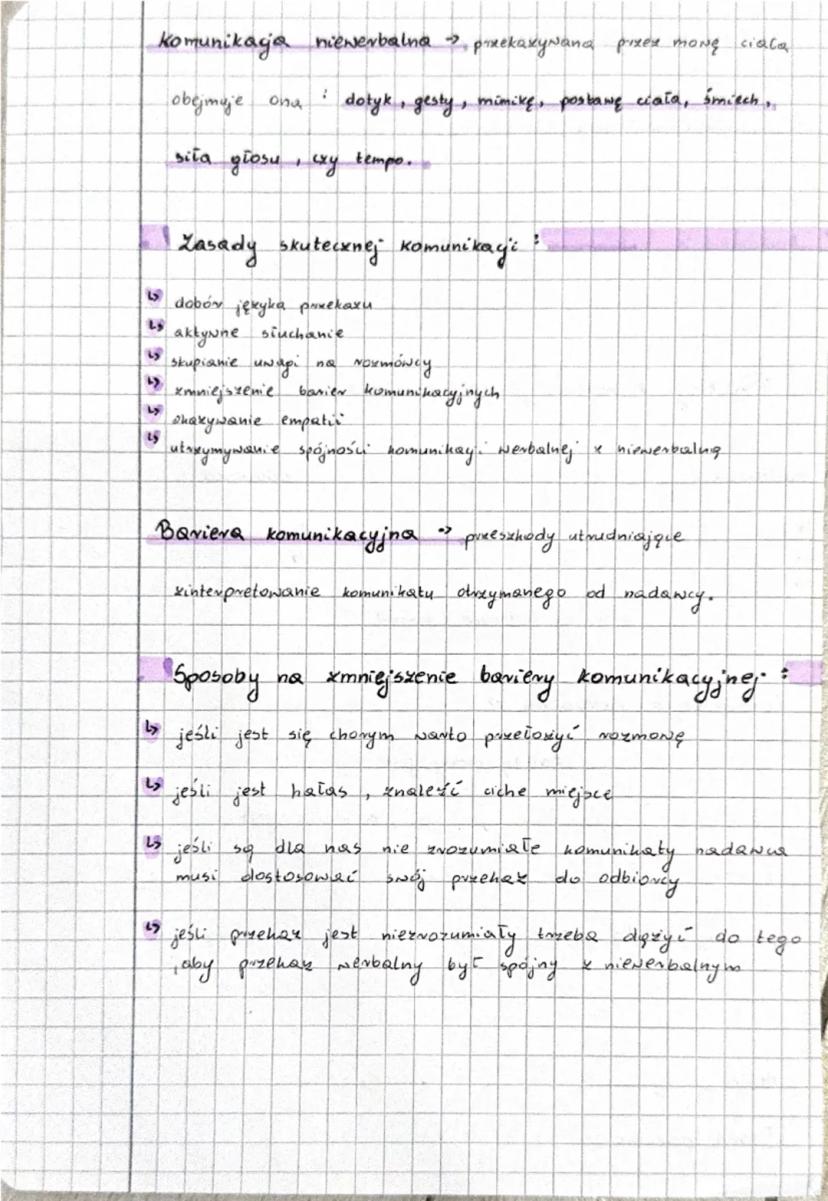 Komunikacja niewerbalna → przekazywana przez mowę ciała
obejmuje ona : dotyk, gesty, mimikę, postawę ciała, śmiech,
siła głosu, czy tempo.
Zasady skutecznej komunikacji :
↳ dobór języka przekazu
↳ aktywne słuchanie
↳ skupianie uwagi na rozmówcy
↳ zmniejszenie barier komunikacyjnych
↳ okazywanie empatii
↳ utrzymywanie spójności komunikacji werbalnej z niewerbalną
Bariera komunikacyjna → przeszkody utrudniające
zinterpretowanie komunikatu otrzymanego od nadawcy.
Sposoby na zmniejszenie bariery komunikacyjnej :
↳ jeśli jest się chorym warto przełożyć rozmowę
↳ jeśli jest hałas, znaleźć ciche miejsce
↳ jeśli są dla nas nie zrozumiałe komunikaty nadawca
musi dostosować swój przekaz do odbiorcy
↳ jeśli przekaz jest niezrozumiały trzeba dążyć do tego
,aby przekaz werbalny był spójny z niewerbalnym